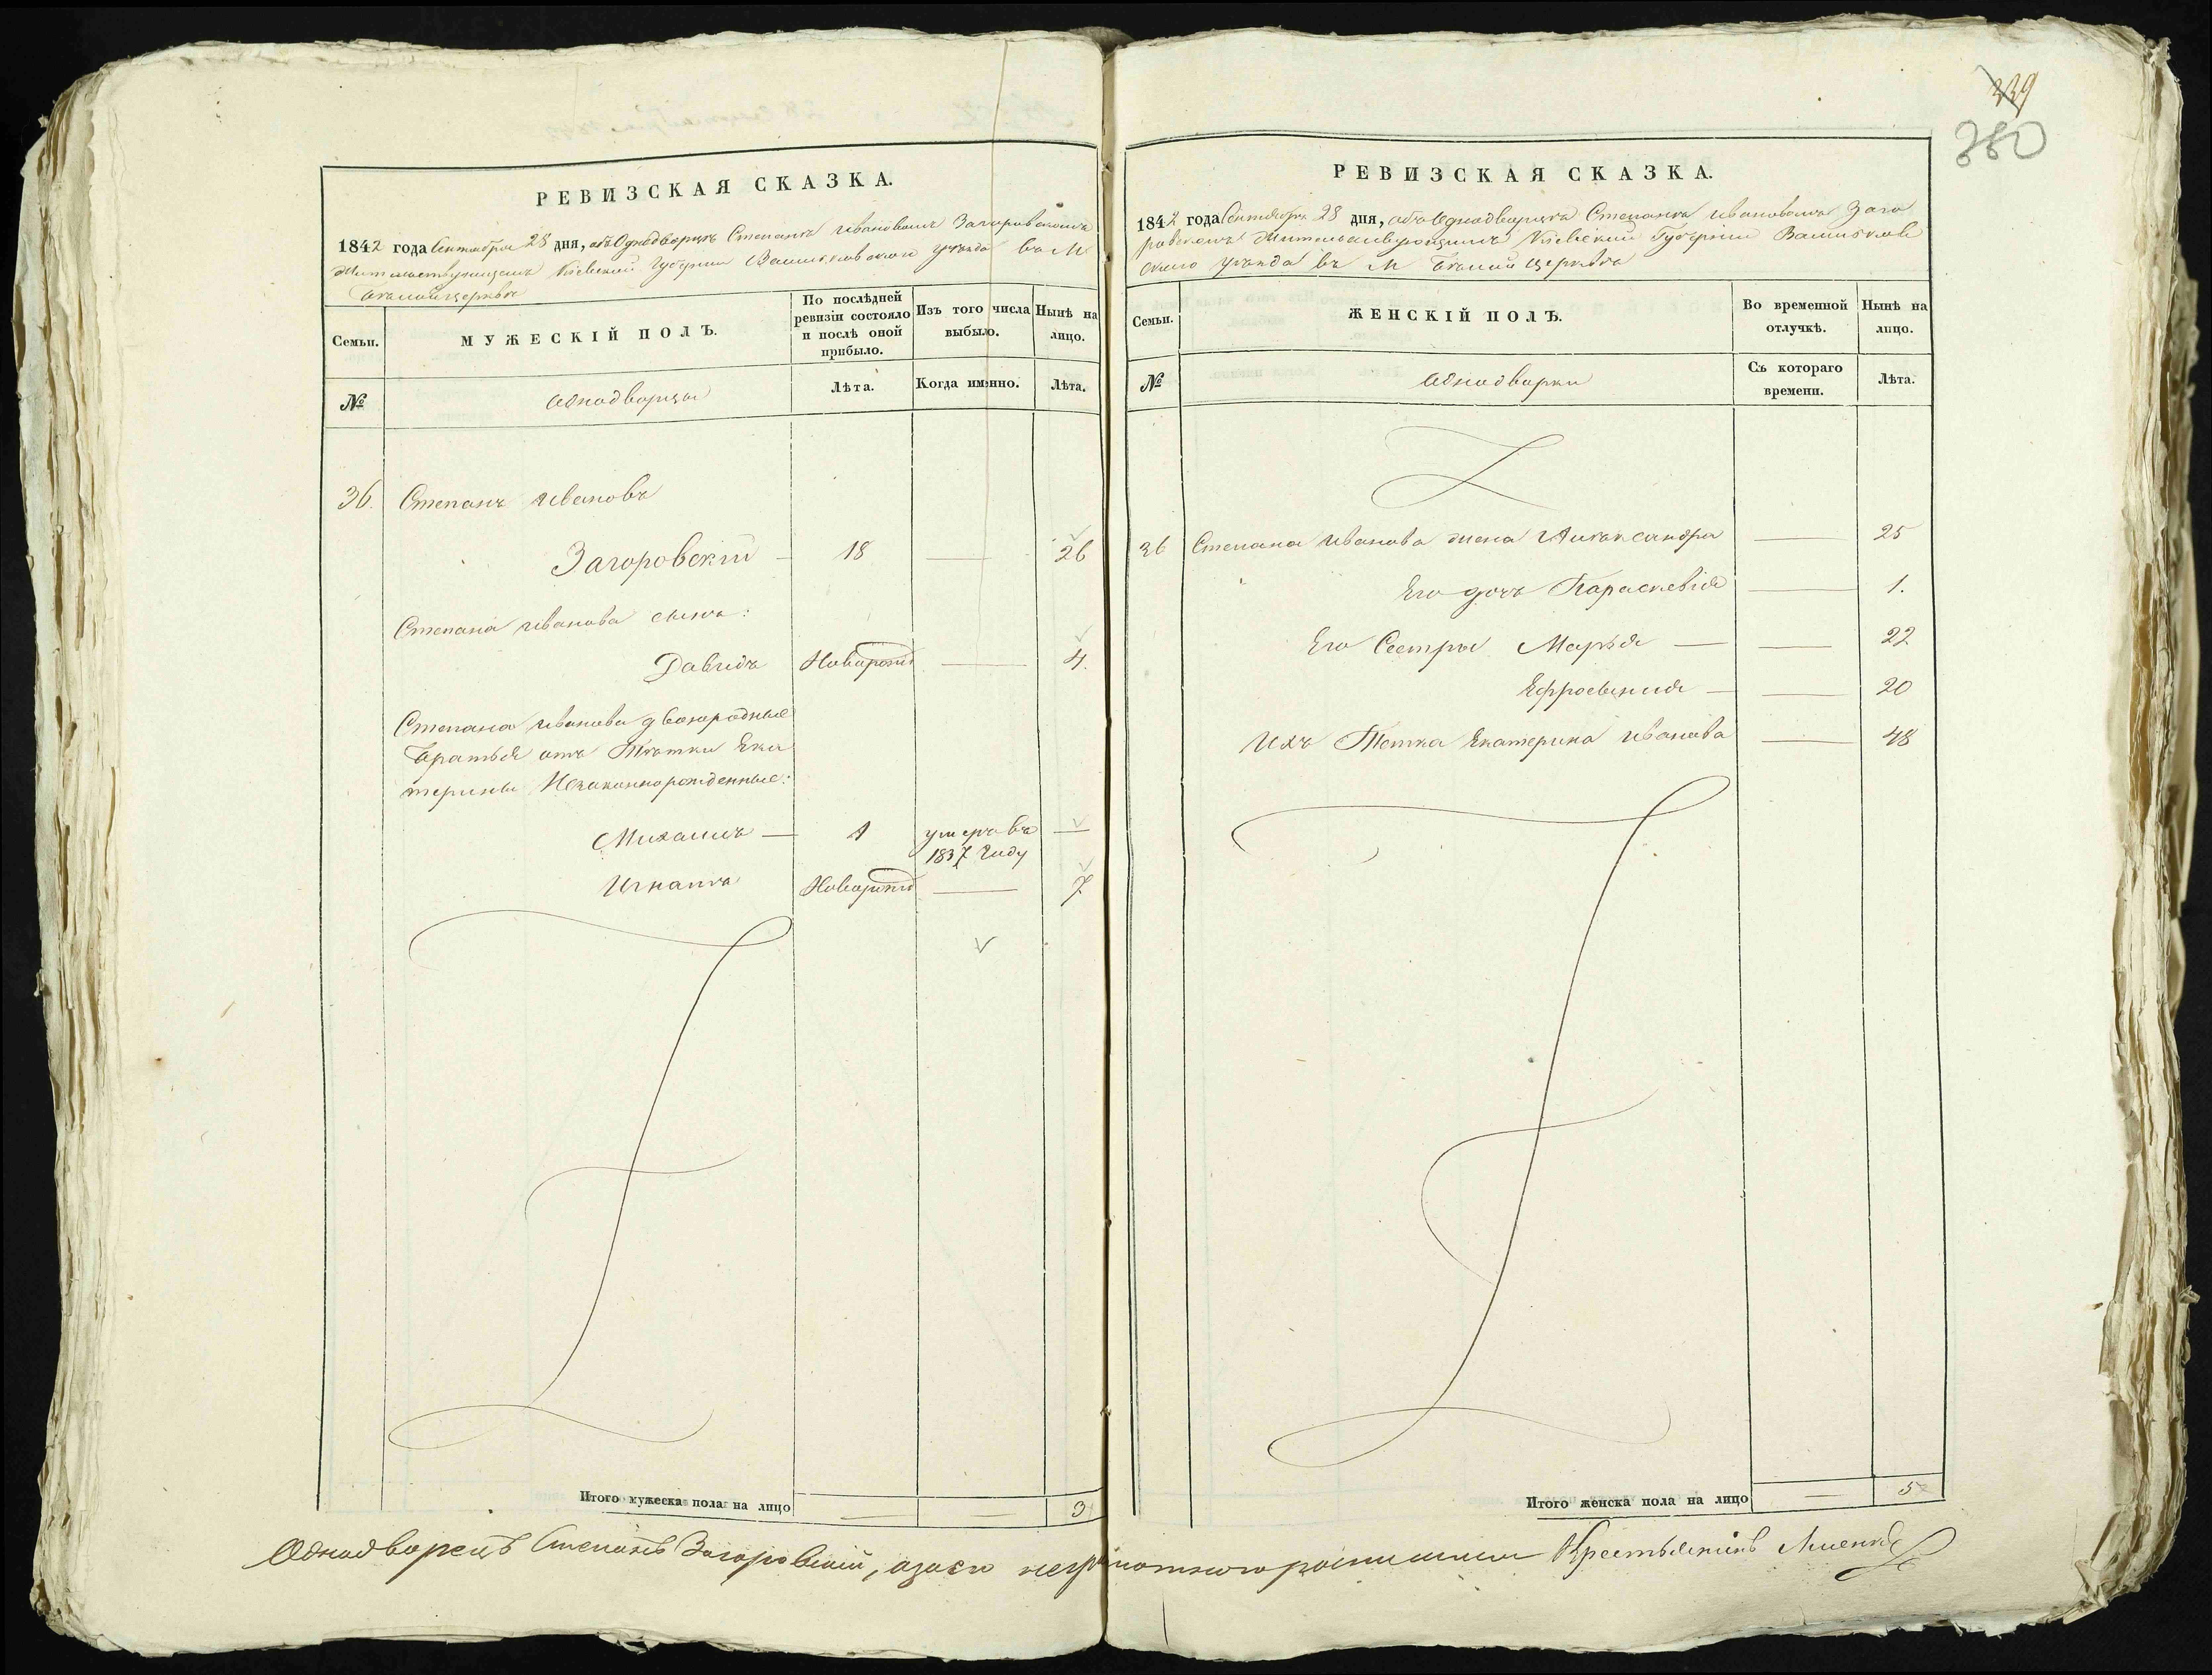 339
380
РЕВИЗСКАЯ СКАЗКА.
1842 года Сентября 28 дня, объ Однодворцѣ Степанѣ Ивановомъ Загоровскомъ
Жительствующемъ Кіевской Губерніи Васильковскаго уѣзда въ М
Бѣлойцерквѣ
Семьи.
МУЖЕСКІЙ ПОЛЪ.
По послѣдней ревизіи состояло и послѣ оной прибыло.
Изъ того числа выбыло.
Нынѣ на лицо.
№
Однодворцы
Лѣта.
Когда именно.
Лѣта.
36. Степанъ Ивановъ
Загоровскій — 18 — 26
Степана Иванова сынъ:
Давидъ Новорожд — 4.
Степана Иванова двоюродные
братья отъ Тѣтки Ека
терины Незаконнорожденные:
Михаилъ — 1 умеръ въ —
1837 году
Игнатъ Новорожд — 7
Итого мужеска пола на лицо — — 3
РЕВИЗСКАЯ СКАЗКА.
1842 года Сентября 28 дня, объ Однодворцѣ Степанѣ Ивановомъ Заго
ровскомъ Жительствующимъ Кіевской Губерніи Васильков
скаго уѣзда въ М Бѣлой Церквѣ
Семьи.
ЖЕНСКІЙ ПОЛЪ.
Во временной отлучкѣ.
Нынѣ на лицо.
№
Однодворки
Съ котораго времени.
Лѣта.
36 Степана Иванова жена Александра — 25
Его дочь Параскевія — 1.
Его Сестры Марья — — 22
Ефросинія — — 20
Ихъ Тетка Екатерина Иванова — 48
Итого женска пола на лицо — 5
Однодворецъ Степанъ Загоровскій, а за его неграмотного росписался Крестьянинъ